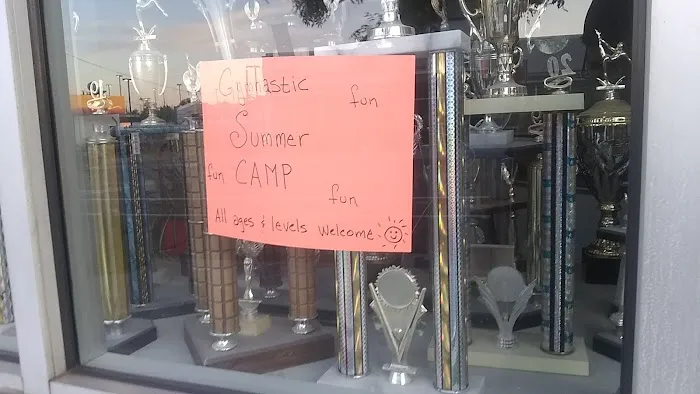 GymTastic
fun
Summer
fun CAMP
fun
All ages & levels welcome!